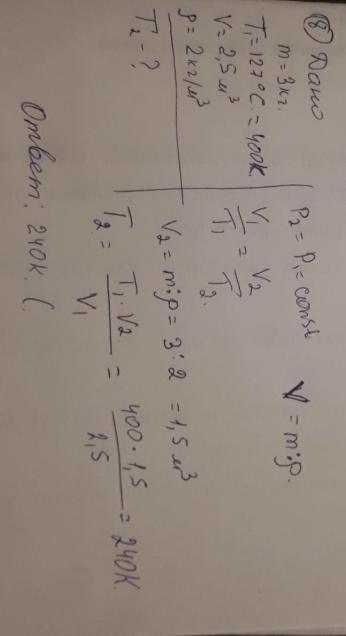 ⑧ Дано
m = 3кг.
T₁ = 127°C. = 400K.
V = 2,5 м³
ρ = 2 кг/м³
T₂ - ?
P₂ = P₁ = const
V = m:ρ.
V₁/T₁ = V₂/T₂.
V₂ = m:ρ = 3:2 = 1,5 м³
T₂ = T₁·V₂/V₁ = 400·1,5/2,5 = 240K.
Ответ: 240К. (